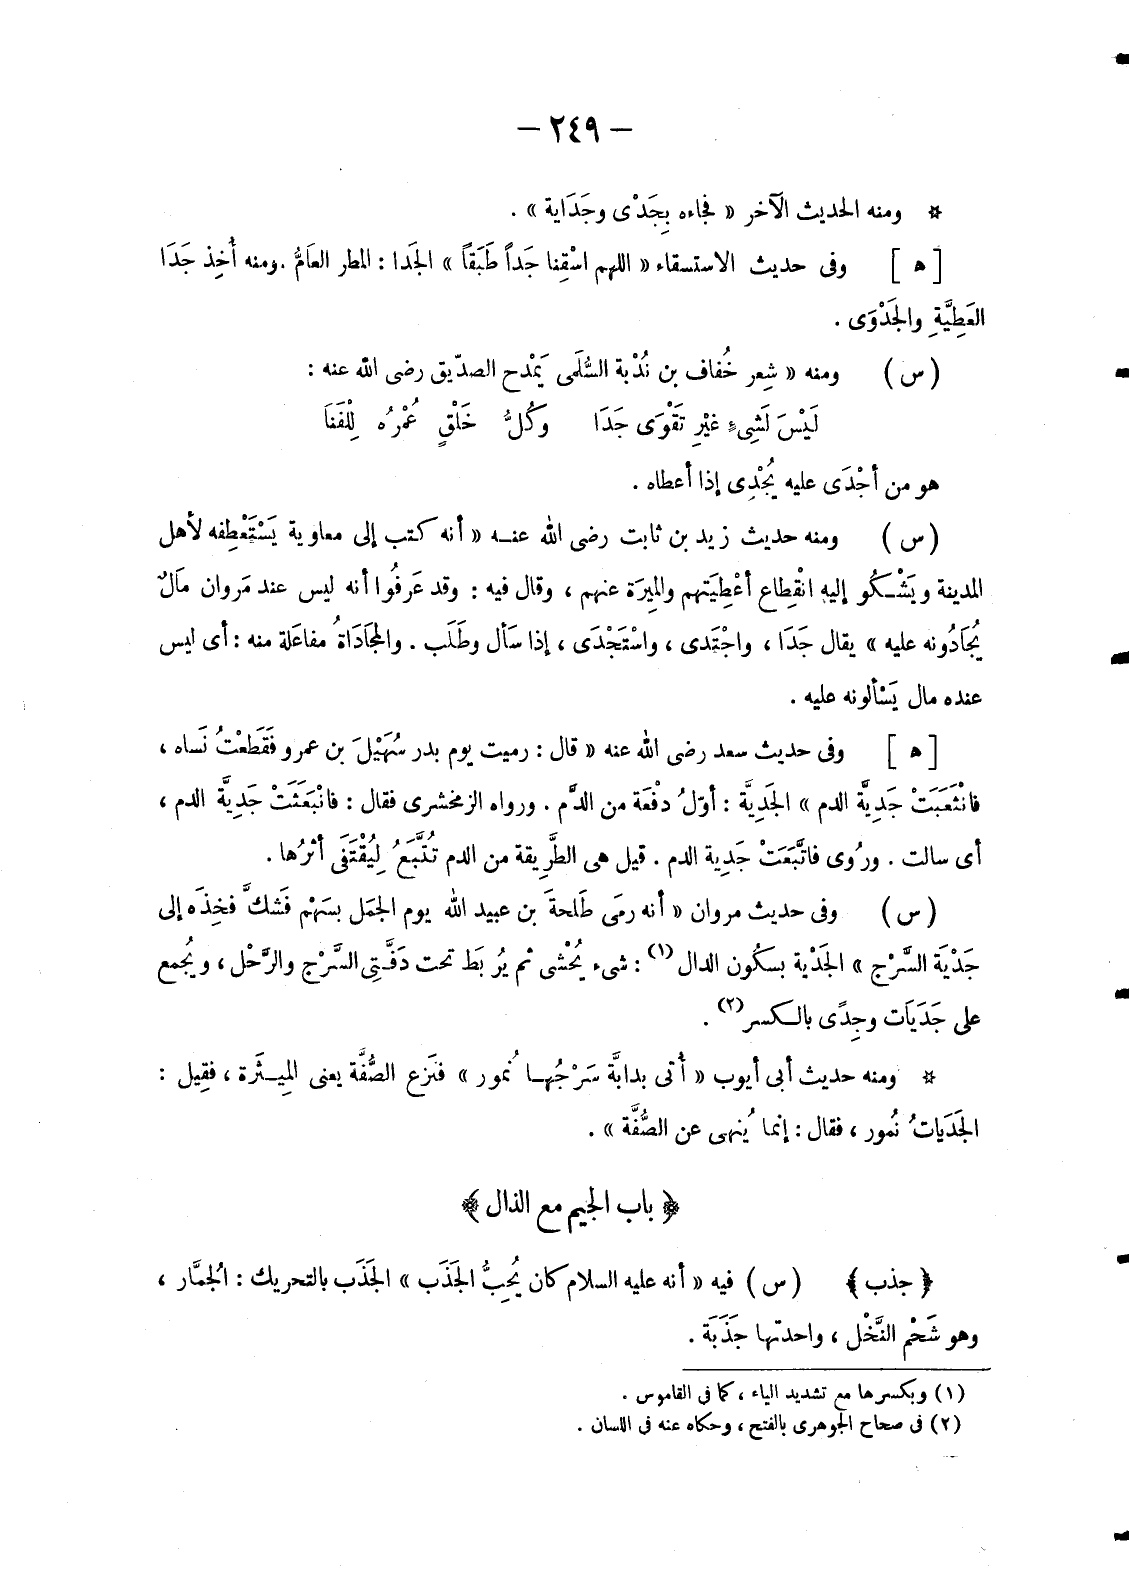 — ٢٤٩ —
* ومنه الحديث الآخر « فجاءه بِجَدْى وجَدَاية » .
[ ه ] وفى حديث الاستسقاء « اللهم اسْقِنا جَداً طَبَقاً » الجَدا : المطر العَامُّ . ومنه أُخِذ جَدَا
العَطِيَّةِ والجَدْوَى .
( س ) ومنه « شِعر خُفاف بن نُدْبة السُّلَمى يَمْدح الصدّيق رضى الله عنه :
لَيْسَ لَشِىءٍ غيْرِ تَقْوَى جَدَا وَكُلُّ خَلْقٍ عُمْرُه لِلْفَنَا
هو من أجْدَى عليه يُجْدِى إذا أعطاه .
( س ) ومنه حديث زيد بن ثابت رضى الله عنـه « أنه كتب إلى معاوية يَسْتَعْطِفه لأهل
المدينة ويَشْـكُو إليه انْقِطاع أعْطِيَتِهم والمِيرَة عنهم ، وقال فيه : وقد عَرفُوا أنه ليس عند مَروان مَالٌ
يُجَادُونه عليه » يقال جَدَا ، واجْتَدى ، واسْتَجْدَى ، إذا سَأل وطَلَب . والمجَادَاةُ مفاعَلة منه : أى ليس
عنده مال يَسْألونه عليه .
[ ه ] وفى حديث سعد رضى الله عنه « قال : رميت يوم بدر سُهَيْلَ بن عمرو فقَطَعْتُ نَساه ،
فانْثَعَبَتْ جَدِيَّة الدم » الجَدِيَّة : أوّلُ دفْعَة من الدَّم . ورواه الزمخشرى فقال : فانْبَعَثَتْ جَدِيَّة الدم ،
أى سالت . ورُوى فاتَّبَعَتْ جَدِية الدم . قيل هى الطَّرِيقة من الدم تُتَّبَعُ لِيُقْتَفَى أثرُها .
( س ) وفى حديث مروان « أنه رمَى طَلحةَ بن عبيد الله يوم الجمَل بسَهْم فَشكَّ فخِذَه إلى
جَدْيَة السَّرْج » الجَدْية بسكُون الدال (١) : شىء يُحْشى ثم يُربَط تحت دَفَّـتِى السَّرْج والرَّحْل ، ويُجمع
على جَدَيَات وجِدًى بالـكسر (٢) .
* ومنه حديث أبى أيوب « أُتى بدابَّة سَرْجُهـا نُمور » فنَزع الصُّفَّة يعنى المِيـثَرة ، فقِيل :
الجَدَياتُ نُمور ، فقال : إنما يُنهى عن الصُّفَّة » .
﴿ باب الجيم مع الذال ﴾
﴿ جذب ﴾ ( س ) فيه « أنه عليه السلام كان يُحِبُّ الجَذَب » الجَذَب بالتحريك : الجُمَّار ،
وهو شَحْم النَّخْل ، واحدتها جَذَبَة .
(١) وبكسرها مع تشديد الياء ، كما فى القاموس .
(٢) فى صحاح الجوهرى بالفتح ، وحكاه عنه فى اللسان .